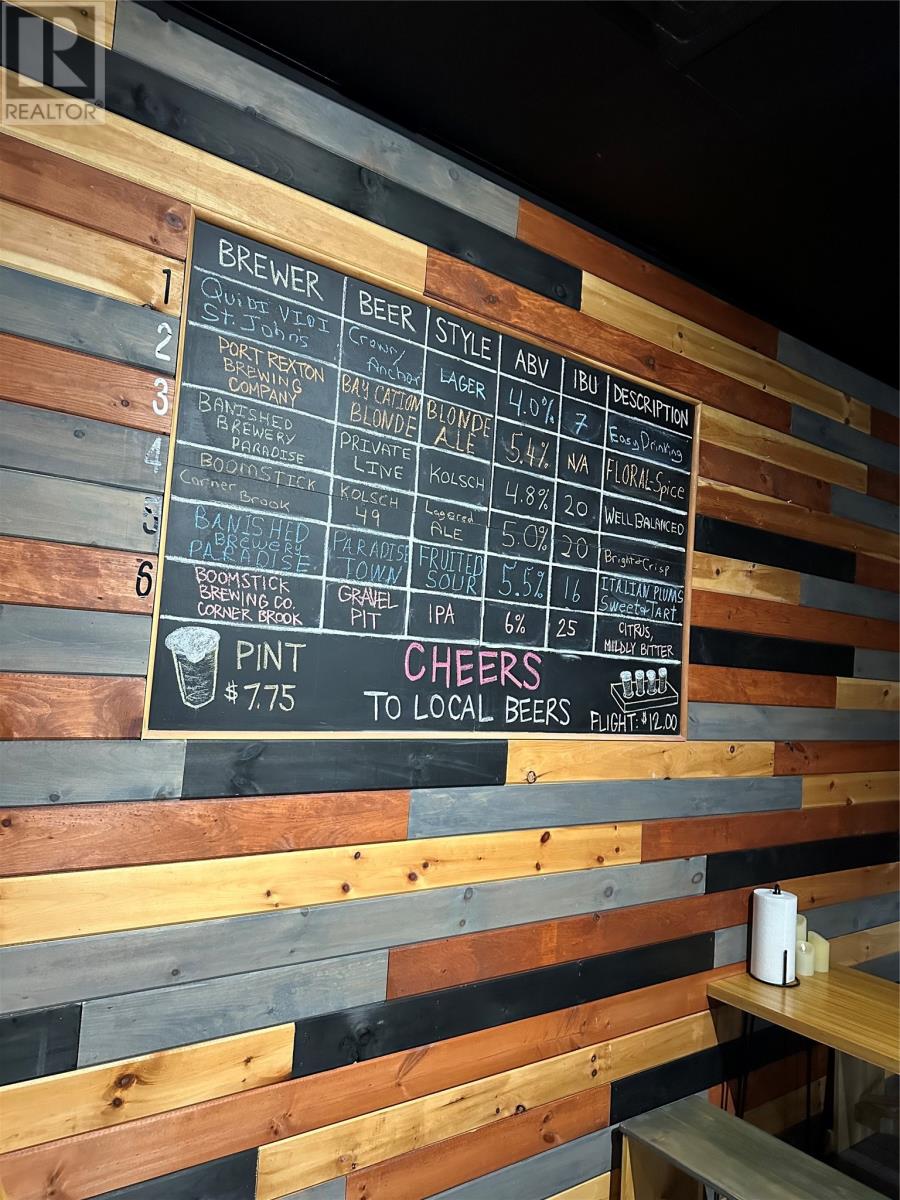 REALTOR
BREWER BEER STYLE ABV IBU DESCRIPTION
1 QUIDI VIDI St. John's Crown/ Anchor LAGER 4.0% 7 Easy Drinking
2 PORT REXTON BREWING COMPANY BAY CATION BLONDE BLONDE ALE 5.4% N/A FLORAL-Spice
3 BANISHED BREWERY PARADISE PRIVATE LINE KOLSCH 4.8% 20 WELL BALANCED
4 BOOMSTICK Corner Brook KOLSCH 49 Lagered ALE 5.0% 20 Bright & Crisp
5 BANISHED Brewery PARADISE PARADISE TOWN FRUITED SOUR 5.5% 16 ITALIAN PLUMS Sweet & Tart
6 BOOMSTICK BREWING CO. CORNER BROOK GRAVEL PIT IPA 6% 25 CITRUS, MILDLY BITTER
PINT
$7.75
CHEERS
TO LOCAL BEERS
FLIGHT: $12.00